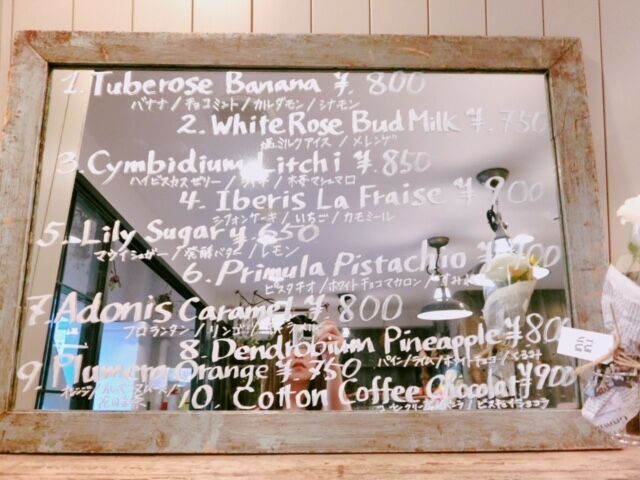 1. Tuberose Banana ¥. 800
バナナ / チョコミント / カルダモン / シナモン
2. White Rose Bud Milk ¥. 750
塩ミルクアイス / メレンゲ
3. Cymbidium Litchi ¥. 850
ハイビスカスゼリー / ライチ / 木苺マシュマロ
4. Iberis La Fraise ¥ 900
シフォンケーキ / いちご / カモミール
5. Lily Sugar ¥ 650
マウイシュガー / 発酵バター / レモン
6. Primula Pistachio ¥
ピスタチオ / ホワイトチョコマカロン /
7. Adonis Caramel ¥ 800
フロランタン / リンゴ /
8. Dendrobium Pineapple ¥ 800
パイン / ライム / ホワイトチョコ / くるみ
9. Plumera Orange ¥. 750
オレンジ /
10. Cotton Coffee Chocolat ¥900